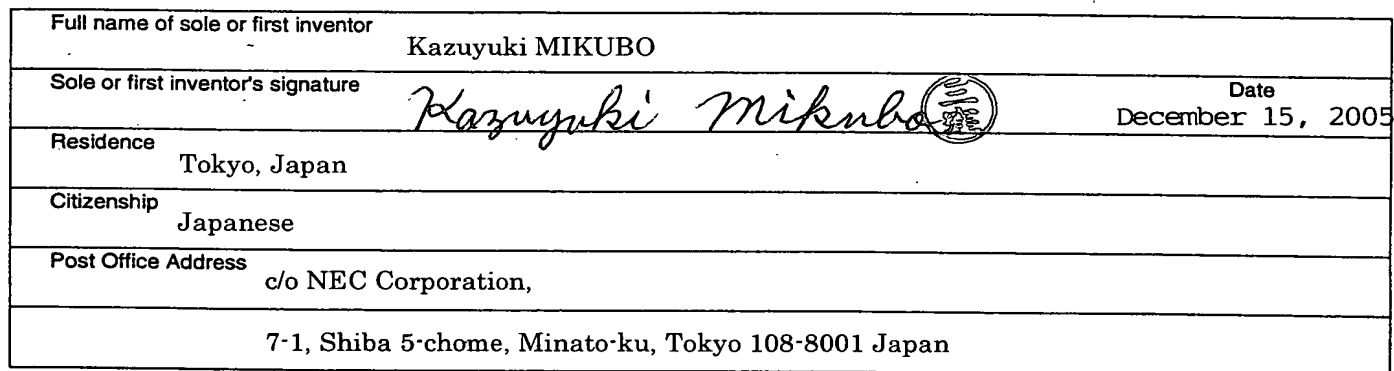 Full name of sole or first inventor
Kazuyuki MIKUBO
Sole or first inventor's signature
Kazuyuki Mikubo 三窪
Date
December 15, 2005
Residence
Tokyo, Japan
Citizenship
Japanese
Post Office Address
c/o NEC Corporation,
7-1, Shiba 5-chome, Minato-ku, Tokyo 108-8001 Japan